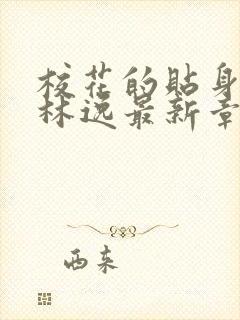 校花的贴身
林逸最新章
西来